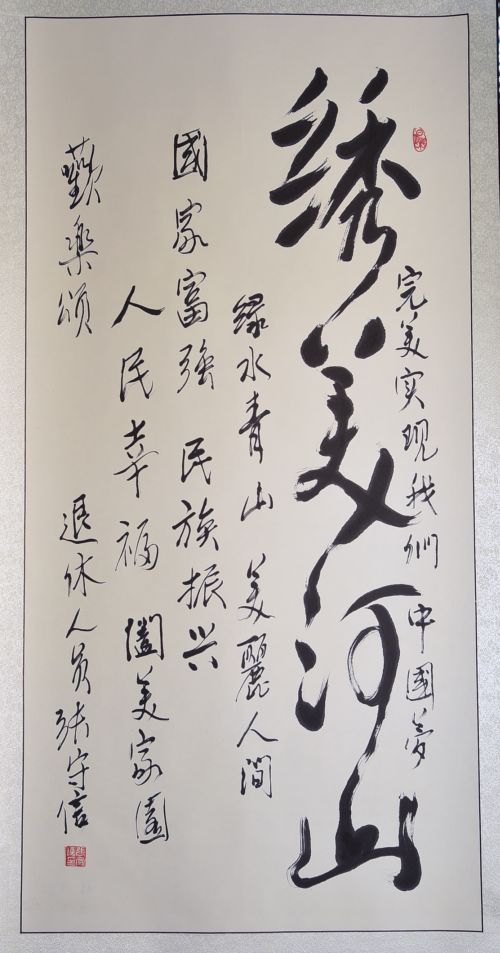 完美实现我們 中國夢
绣美河山
緑水青山 美麗人间
國家富強 民族振兴
人民幸福 闔美家園
歡樂颂 退休人员张守信